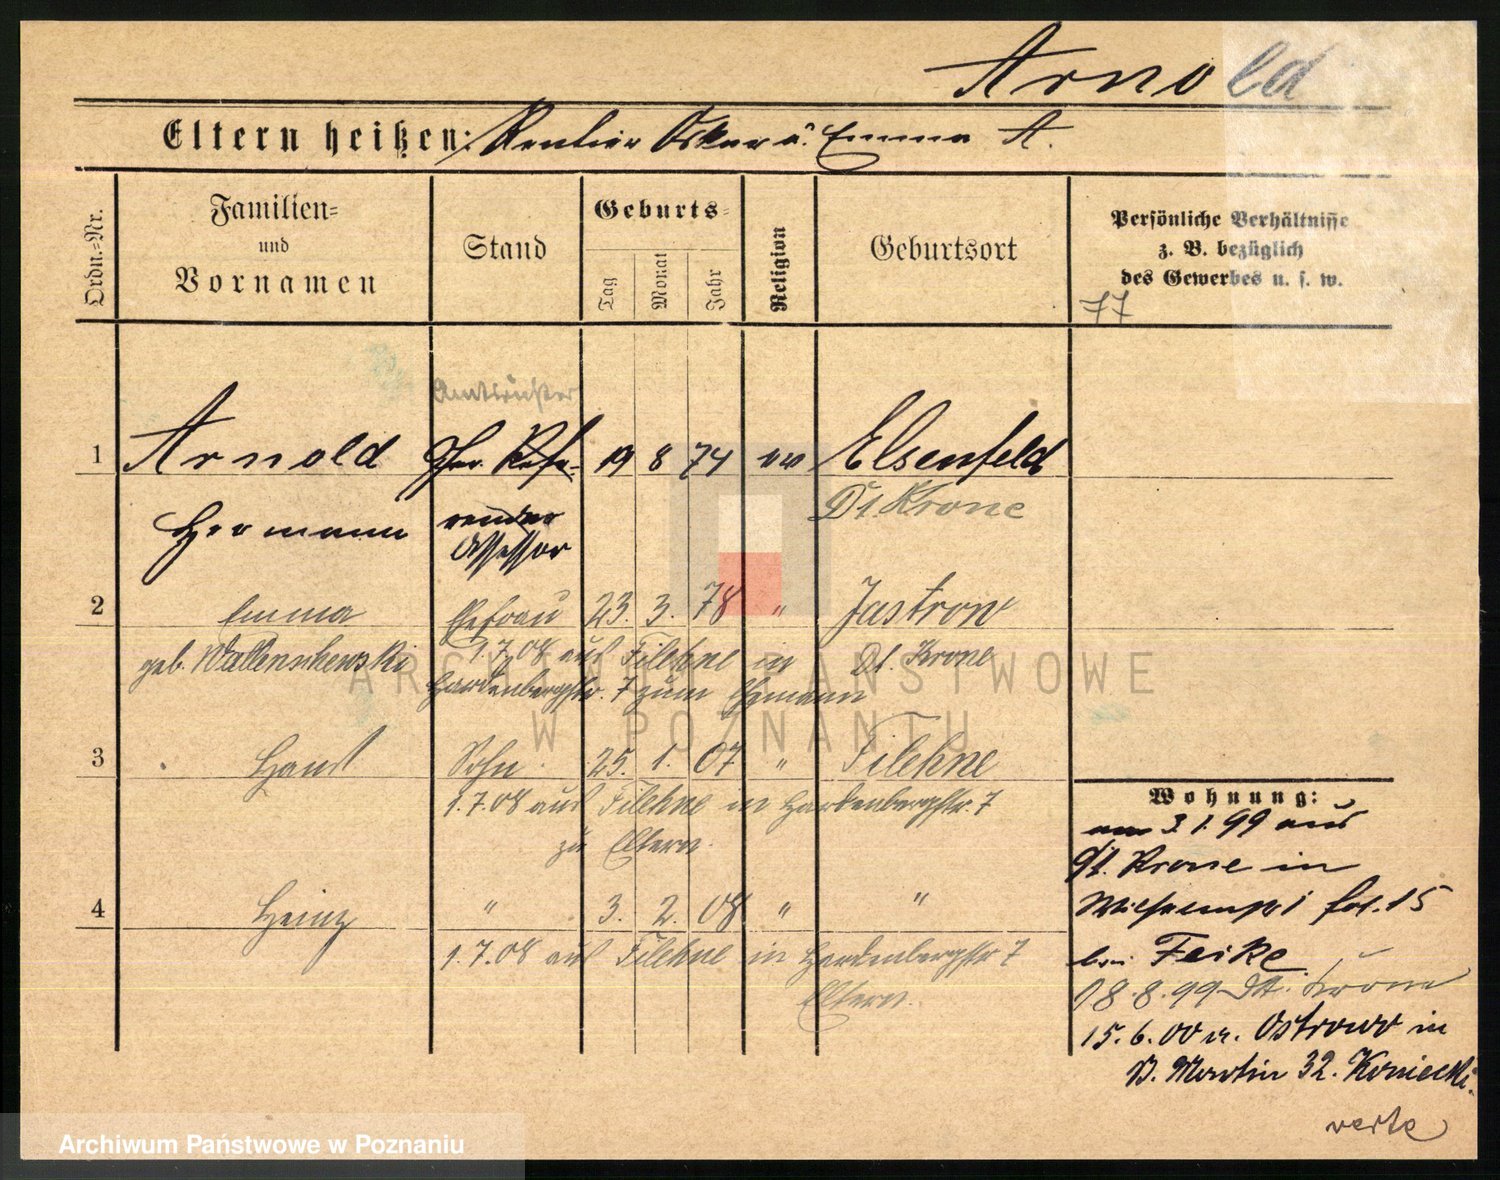 Arnold
Eltern heißen: Rentier Oskar u. Emma A.
Ordn.=Nr.
Familien=
und
Vornamen
Stand
Geburts=
Tag
Monat
Jahr
Religion
Geburtsort
Persönliche Verhältnisse
z. B. bezüglich
des Gewerbes u. s. w.
77
Amtsrichter
1 Arnold Ger. Refe- 19 8 74 ev Elsenfeld
Dt. Krone
Hermann rendar
Assessor
2 Emma Ehefrau 23. 3. 78 " Jastrow
geb. 1.7.08 aus Filehne in Dt. Krone
Hardenbergstr. 7 zum Ehemann
3 Hans Sohn 25. 1. 07 " Filehne
1.7.08 aus Filehne in Hardenbergstr. 7
zu Eltern.
4 Heinz " 3. 2. 08 " "
1.7.08 aus Filehne in Hardenbergstr 7
Eltern.
Wohnung:
am 3.1.99 aus
Dt. Krone in
15
bei Feike
8.99 Dt. Krone
15.6.00 v. Ostrowo in
S. Martin 32. Koniecki.
verte
ARCHIWUM PAŃSTWOWE
W POZNANIU
Archiwum Państwowe w Poznaniu